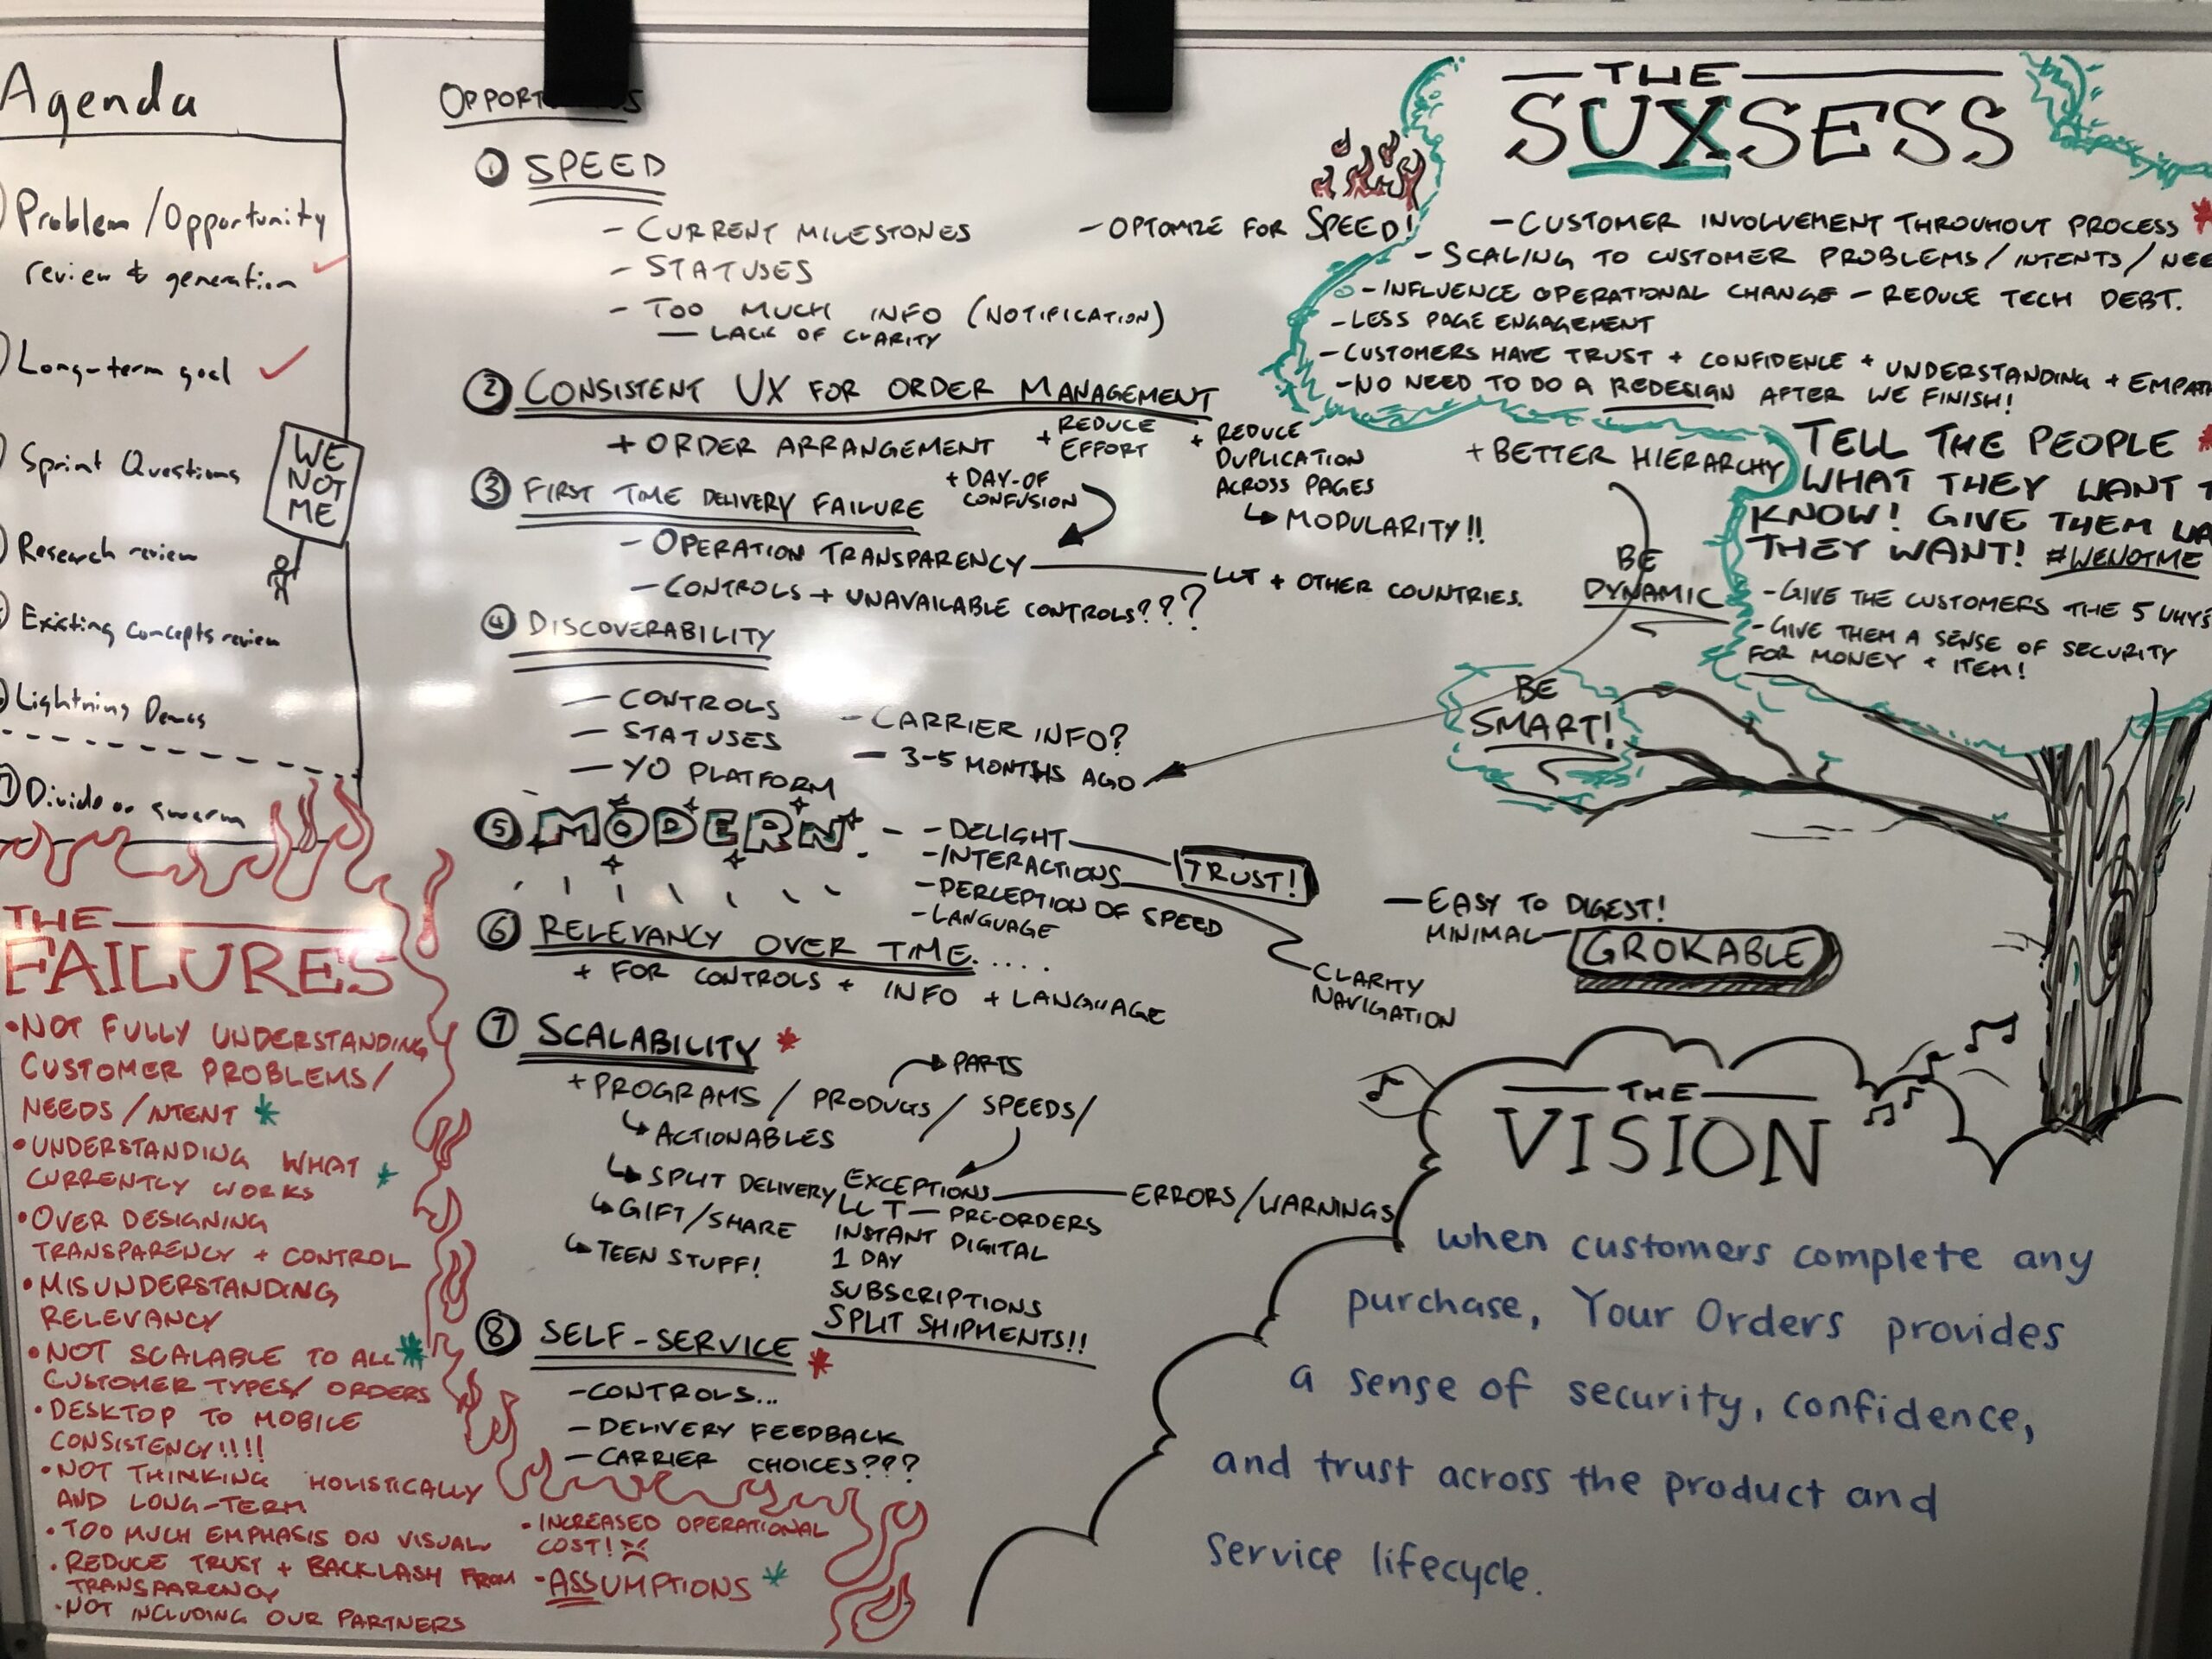 Agenda
Problem/Opportunity
review & generation
Long-term goal
Sprint Questions
WE
NOT
ME
Research review
Existing concepts review
Lightning Demos
Divide or swarm
THE
FAILURES
•NOT FULLY UNDERSTANDING
CUSTOMER PROBLEMS/
NEEDS/INTENT *
•UNDERSTANDING WHAT *
CURRENTLY WORKS
•OVER DESIGNING
TRANSPARENCY + CONTROL
•MISUNDERSTANDING
RELEVANCY
•NOT SCALABLE TO ALL *
CUSTOMER TYPES/ ORDERS
•DESKTOP TO MOBILE
CONSISTENCY!!!!
•NOT THINKING HOLISTICALLY
AND LONG-TERM
•TOO MUCH EMPHASIS ON VISUAL
•REDUCE TRUST + BACKLASH FROM
TRANSPARENCY
•NOT INCLUDING OUR PARTNERS
•INCREASED OPERATIONAL
COST!
-ASSUMPTIONS *
① SPEED
- CURRENT MILESTONES
- STATUSES
- TOO MUCH INFO (NOTIFICATION)
— LACK OF CLARITY
- OPTOMIZE FOR SPEED!
② CONSISTENT UX FOR ORDER MANAGEMENT
+ ORDER ARRANGEMENT
+ REDUCE
EFFORT
+ REDUCE
DUPLICATION
ACROSS PAGES
↳ MODULARITY!!
+ BETTER HIERARCHY
③ FIRST TIME DELIVERY FAILURE
+ DAY-OF
CONFUSION
- OPERATION TRANSPARENCY
- CONTROLS + UNAVAILABLE CONTROLS???
+ OTHER COUNTRIES.
BE
DYNAMIC
④ DISCOVERABILITY
— CONTROLS
— STATUSES
— YO PLATFORM
- CARRIER INFO?
- 3-5 MONTHS AGO
BE
SMART!
⑤ MODERN
- DELIGHT
- INTERACTIONS
- PERCEPTION OF SPEED
- LANGUAGE
TRUST!
CLARITY
NAVIGATION
— EASY TO DIGEST!
MINIMAL—
GROKABLE
⑥ RELEVANCY OVER TIME.....
+ FOR CONTROLS + INFO + LANGUAGE
⑦ SCALABILITY *
+ PROGRAMS / PRODUCTS / SPEEDS/
PARTS
↳ ACTIONABLES
↳ SPLIT DELIVERY
↳ GIFT/SHARE
↳ TEEN STUFF!
EXCEPTIONS
— ERRORS/WARNINGS
— PRE-ORDERS
INSTANT DIGITAL
1 DAY
SUBSCRIPTIONS
SPLIT SHIPMENTS!!
⑧ SELF-SERVICE *
- CONTROLS...
- DELIVERY FEEDBACK
- CARRIER CHOICES???
THE
SUXSESS
- CUSTOMER INVOLVEMENT THROUHOUT PROCESS *
- SCALING TO CUSTOMER PROBLEMS/INTENTS/
- INFLUENCE OPERATIONAL CHANGE - REDUCE TECH DEBT.
- LESS PAGE ENGAGEMENT
- CUSTOMERS HAVE TRUST + CONFIDENCE + UNDERSTANDING +
- NO NEED TO DO A REDESIGN AFTER WE FINISH!
TELL THE PEOPLE *
WHAT THEY WANT
KNOW! GIVE THEM
THEY WANT! #WENOTME
- GIVE THE CUSTOMERS THE 5 WHYS
- GIVE THEM A SENSE OF SECURITY
FOR MONEY + ITEM!
THE
VISION
when customers complete any
purchase, Your Orders provides
a sense of security, confidence,
and trust across the product and
service lifecycle.